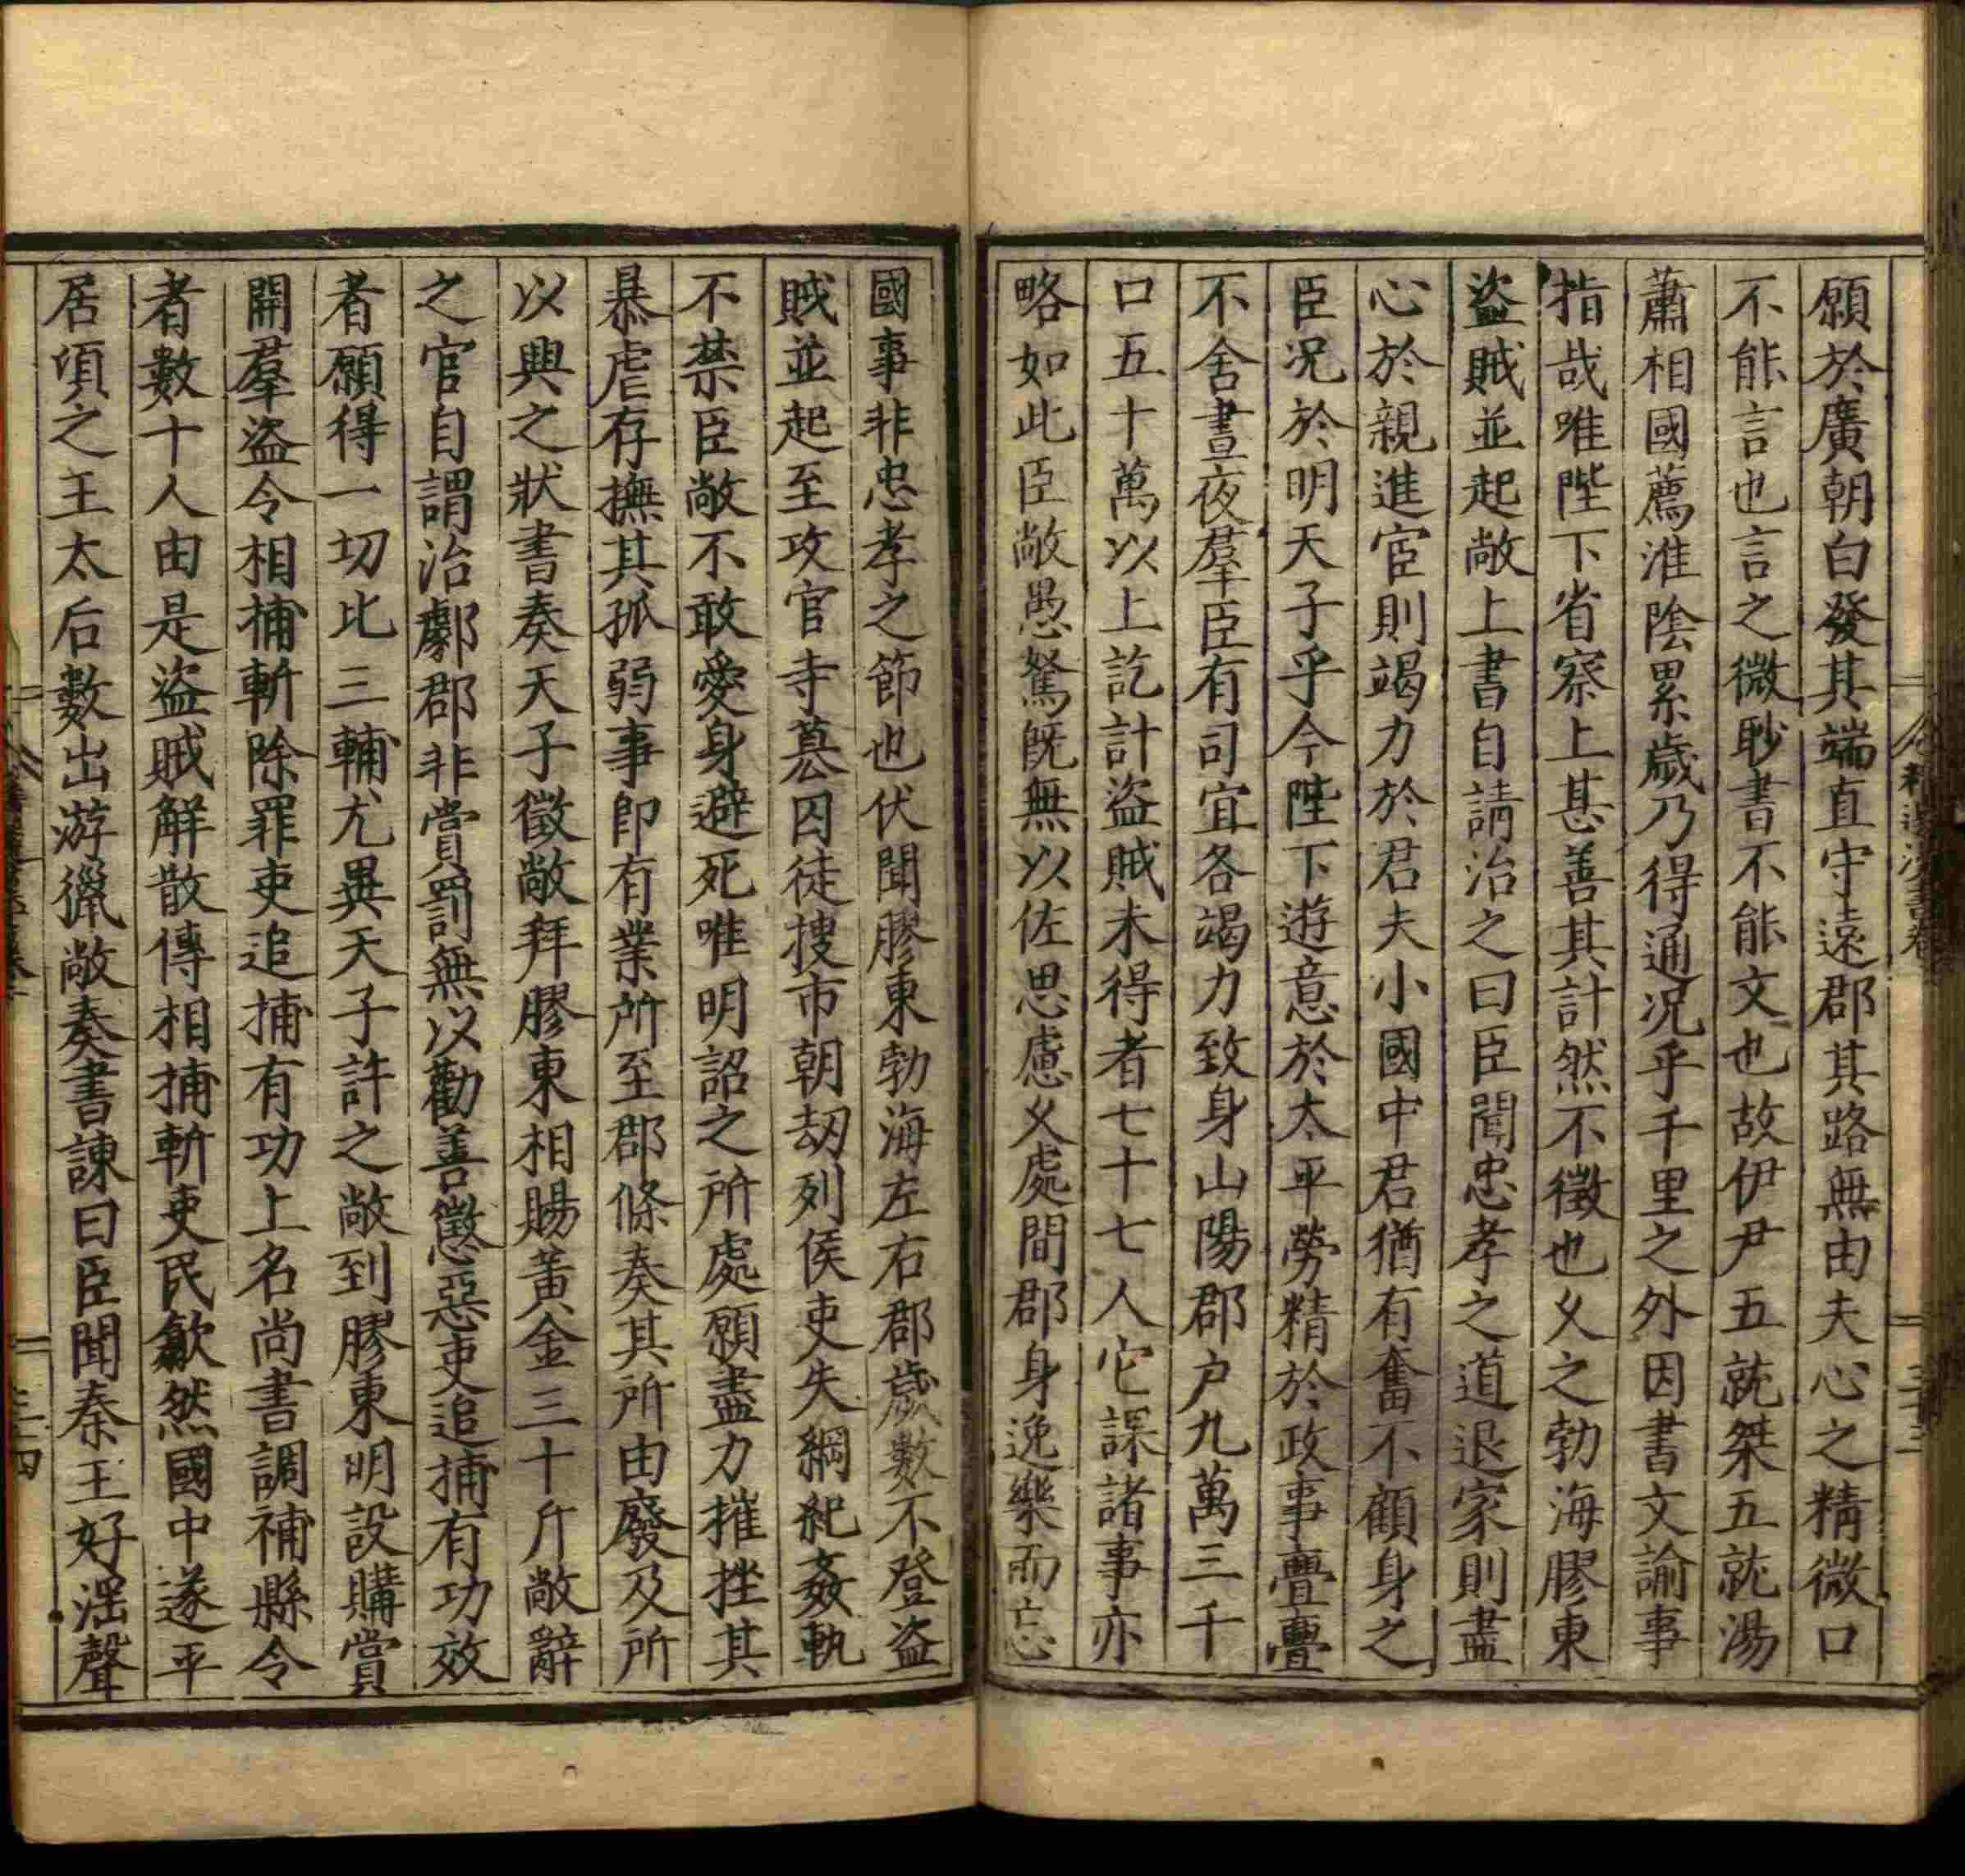 願於廣朝白發其端直守遠郡其路無由夫心之精微口
不能言也言之微眇書不能文也故伊尹五就桀五就湯
蕭相國薦淮陰累歲乃得通况乎千里之外因書文諭事
指哉唯陛下省察上甚善其計然不徵也乆之勃海膠東
盜賊並起敞上書自請治之曰臣聞忠孝之道退家則盡
心於親進宦則竭力於君夫小國中君猶有奮不顧身之
臣况於明天子乎今陛下遊意於太平勞精於政事亹亹
不舍晝夜羣臣有司宜各竭力致身山陽郡户九萬三千
口五十萬以上訖計盜賊未得者七十七人它課諸事亦
略如此臣敞愚駑既無以佐思慮乆處間郡身逸樂而忘
國事非忠孝之節也伏聞膠東勃海左右郡歲數不登盜
賊並起至攻官寺簒囚徒搜市朝刼列侯吏失綱紀姦軌
不禁臣敞不敢愛身避死唯明詔之所處願盡力摧挫其
暴虐存撫其孤弱事即有業所至郡條奏其所由廢及所
以興之狀書奏天子徵敞拜膠東相賜黃金三十斤敞辭
之官自謂治劇郡非賞罰無以勸善懲惡吏追捕有功效
者願得一切比三輔尤異天子許之敞到膠東明設購賞
開羣盜令相捕斬除罪吏追捕有功上名尚書調補縣令
者數十人由是盜賊解散傳相捕斬吏民歙然國中遂平
居頃之王太后數出游獵敞奏書諫曰臣聞秦王好淫聲